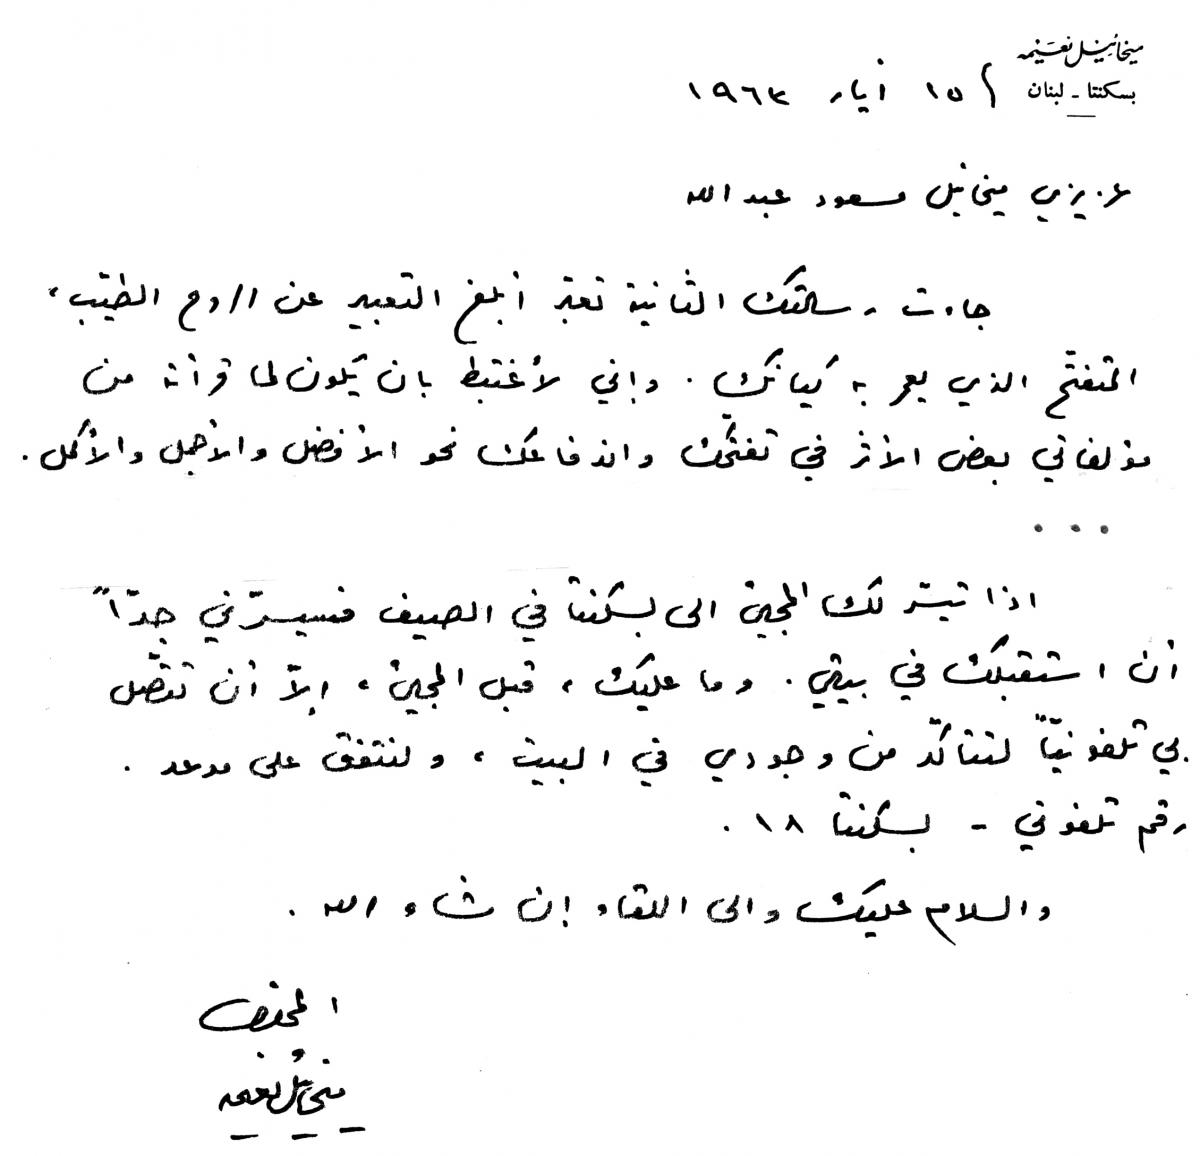 ميخائيل نعيمه
بسكنتا - لبنان
١٥ أيار ١٩٦٣
عزيزي ميخائيل مسعود عبدالله
جاءت رسالتك الثانية تعبّر أبلغ التعبير عن الروح الطيّب،
المتفتّح الذي يعمر به كيانك. وإني لأغتبط بان يكون لما قرأته من
مؤلفاتي بعض الأثر في تفتّحك واندفاعك نحو الأفضل والأجمل والأكمل.
...
اذا تيسّر لك المجيئ الى بسكنتا في الصيف فسيسرّني جدّاً
أن استقبلك في بيتي. وما عليك، قبل المجيئ، إلاّ أن تتّصل
بي تلفونيّاً لتتأكّد من وجودي في البيت، ولنتفق على موعد.
رقم تلفوني - بسكنتا ١٨.
والسلام عليك والى اللقاء إن شاء الله.
المخلص
ميخائيل نعيمه